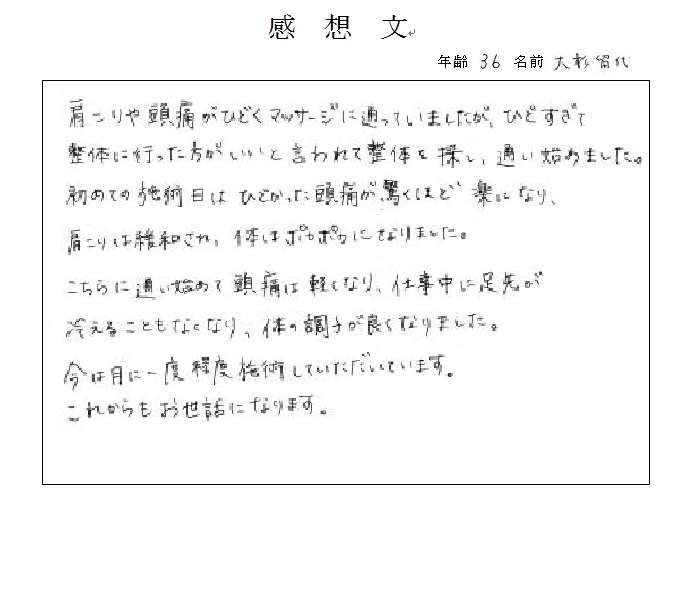 感 想 文
年齢 36 名前 大杉留代
肩こりや頭痛がひどくマッサージに通っていましたが、ひどすぎて
整体に行った方がいいと言われて整体を探し、通い始めました。
初めての施術日はひどかった頭痛が驚くほど楽になり、
肩こりは緩和され、体はポカポカになりました。
こちらに通い始めて頭痛は軽くなり、仕事中に足先が
冷えることもなくなり、体の調子が良くなりました。
今は月に一度程度施術していただいています。
これからもお世話になります。